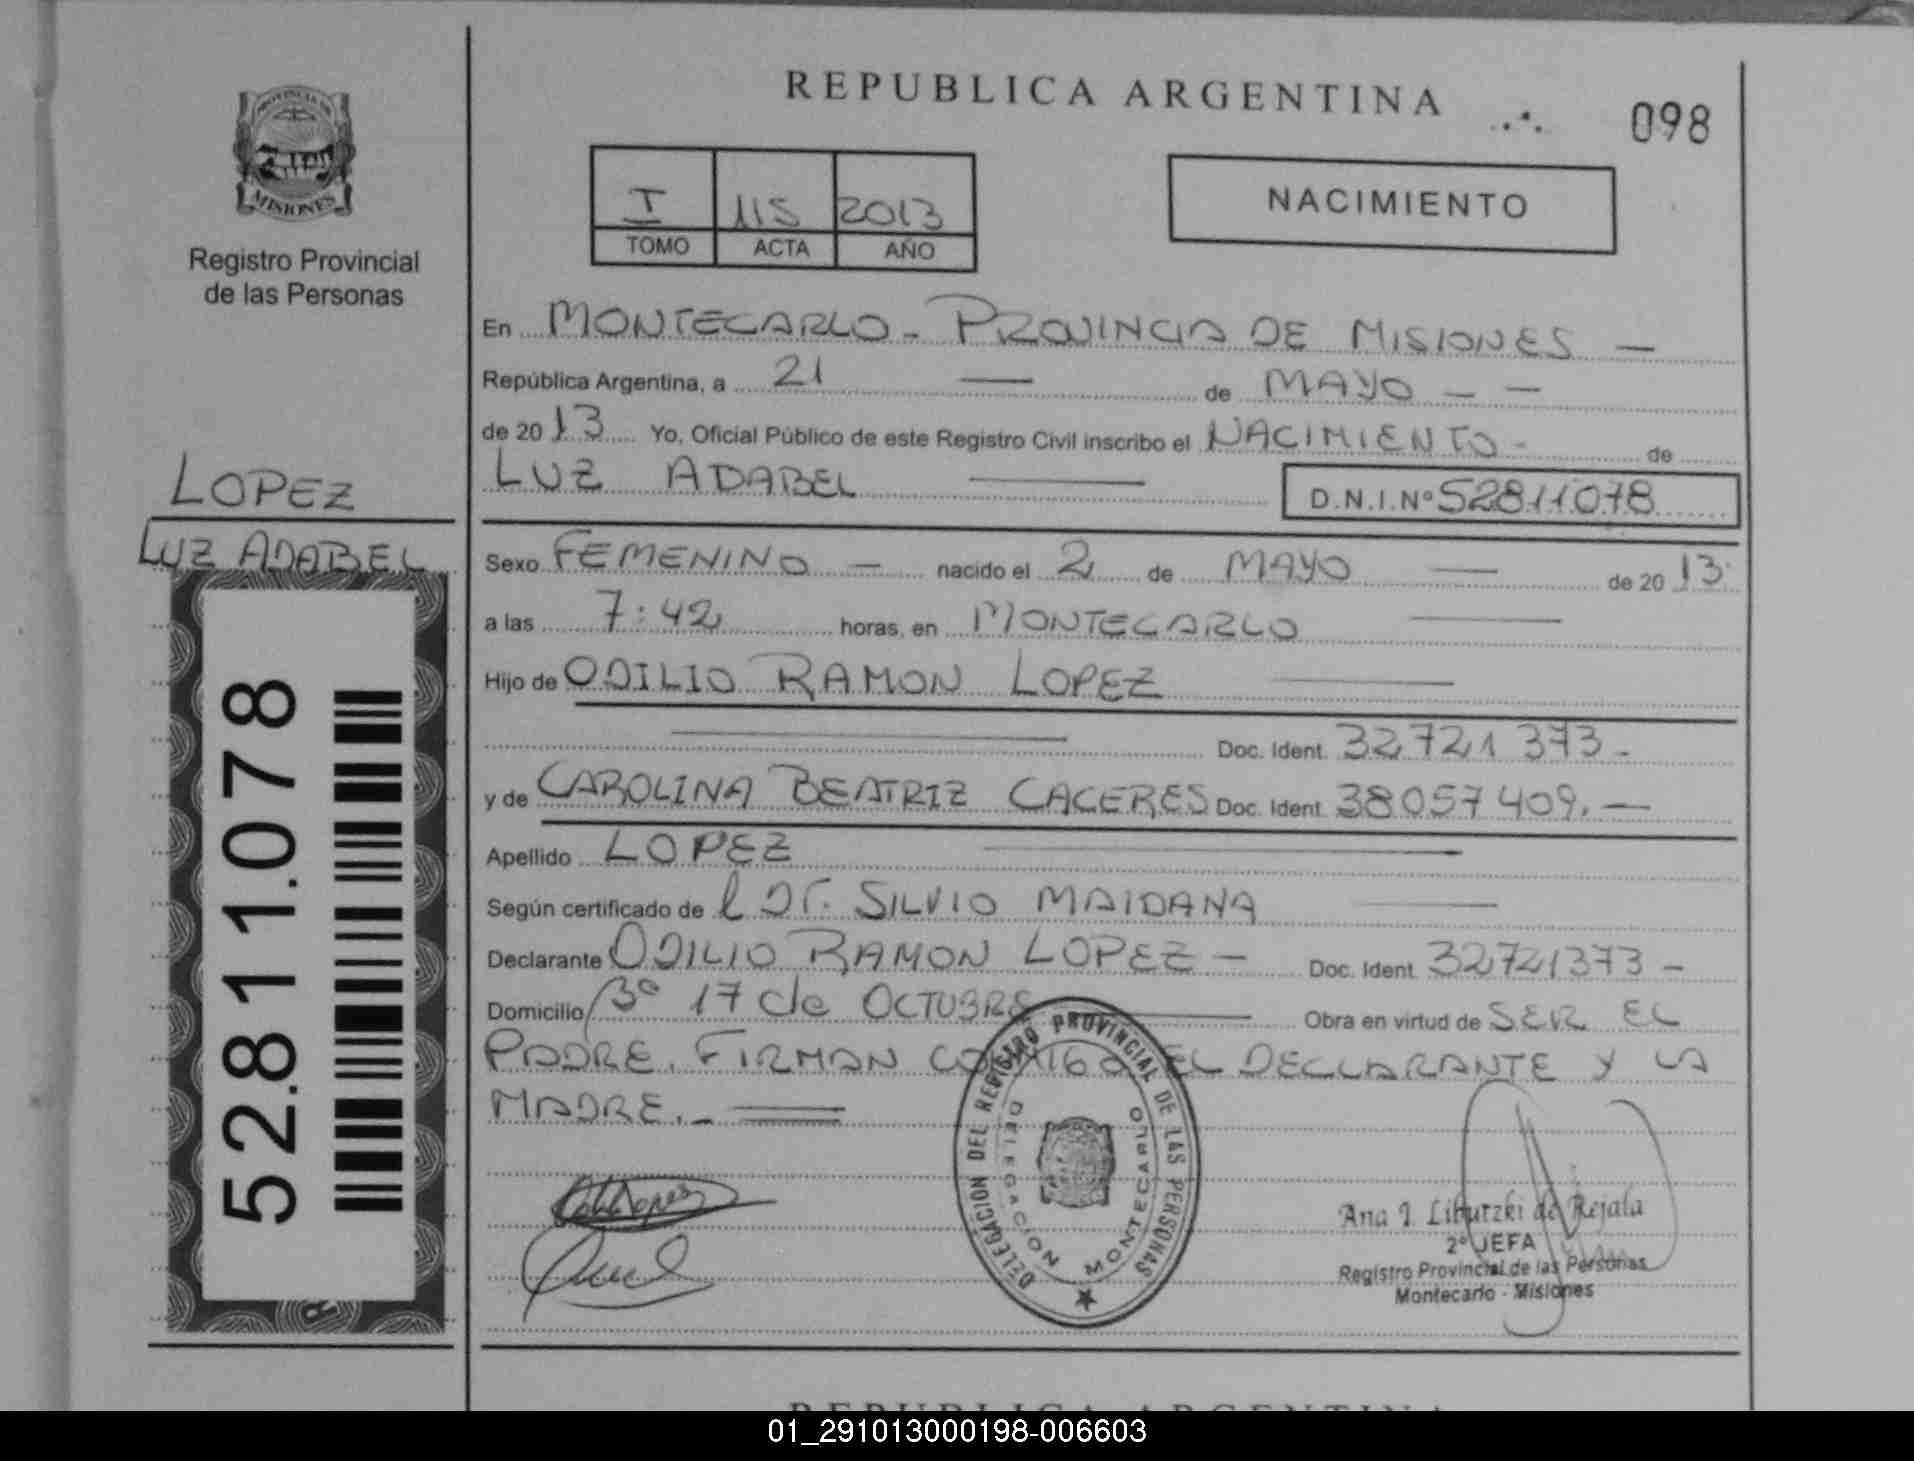 REPUBLICA ARGENTINA
098
PROVINCIA DE
MISIONES
Registro Provincial
de las Personas
I 115 2013
TOMO ACTA AÑO
NACIMIENTO
En MONTECARLO - PROVINCIA DE MISIONES —
República Argentina, a 21 — de MAYO - -
de 20 13 Yo, Oficial Público de este Registro Civil inscribo el NACIMIENTO - de
LUZ ADABEL — D.N.I.Nº 52811078
LOPEZ
LUZ ADABEL
52.811.078
Sexo FEMENINO — nacido el 2 de MAYO — de 20 13
a las 7:42 horas, en MONTECARLO —
Hijo de ODILIO RAMON LOPEZ —
— Doc. Ident. 32721373 -
y de CAROLINA BEATRIZ CACERES Doc. Ident. 38057409. —
Apellido LOPEZ —
Según certificado de l Dr. SILVIO MAIDANA —
Declarante ODILIO RAMON LOPEZ - Doc. Ident. 32721373 -
Domicilio Bº 17 de OCTUBRE — Obra en virtud de SER EL
PADRE. FIRMAN CONMIGO EL DECLARANTE Y LA
MADRE. - =
DELEGACION DEL REGISTRO PROVINCIAL DE LAS PERSONAS
DELEGACION MONTECARLO
Ana I. de Rejala
2º JEFA
Registro Provincial de las Personas
Montecarlo - Misiones
REPUBLICA ARGENTINA
01_291013000198-006603